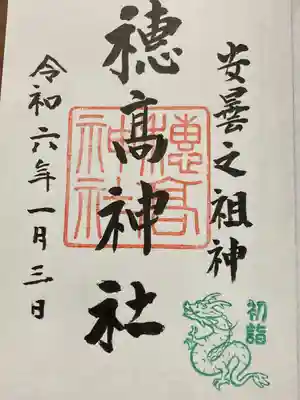 安曇之祖神
穂高神社
穂高神社
令和六年一月三日
初詣